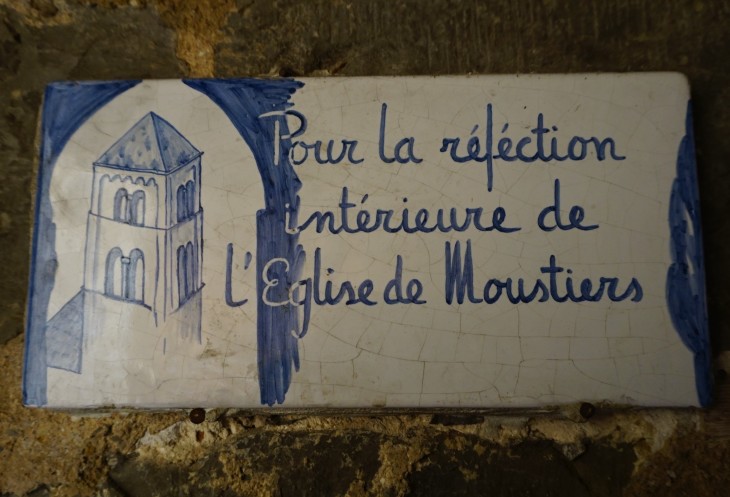 Pour la réféction
intérieure de
l'Eglise de Moustiers